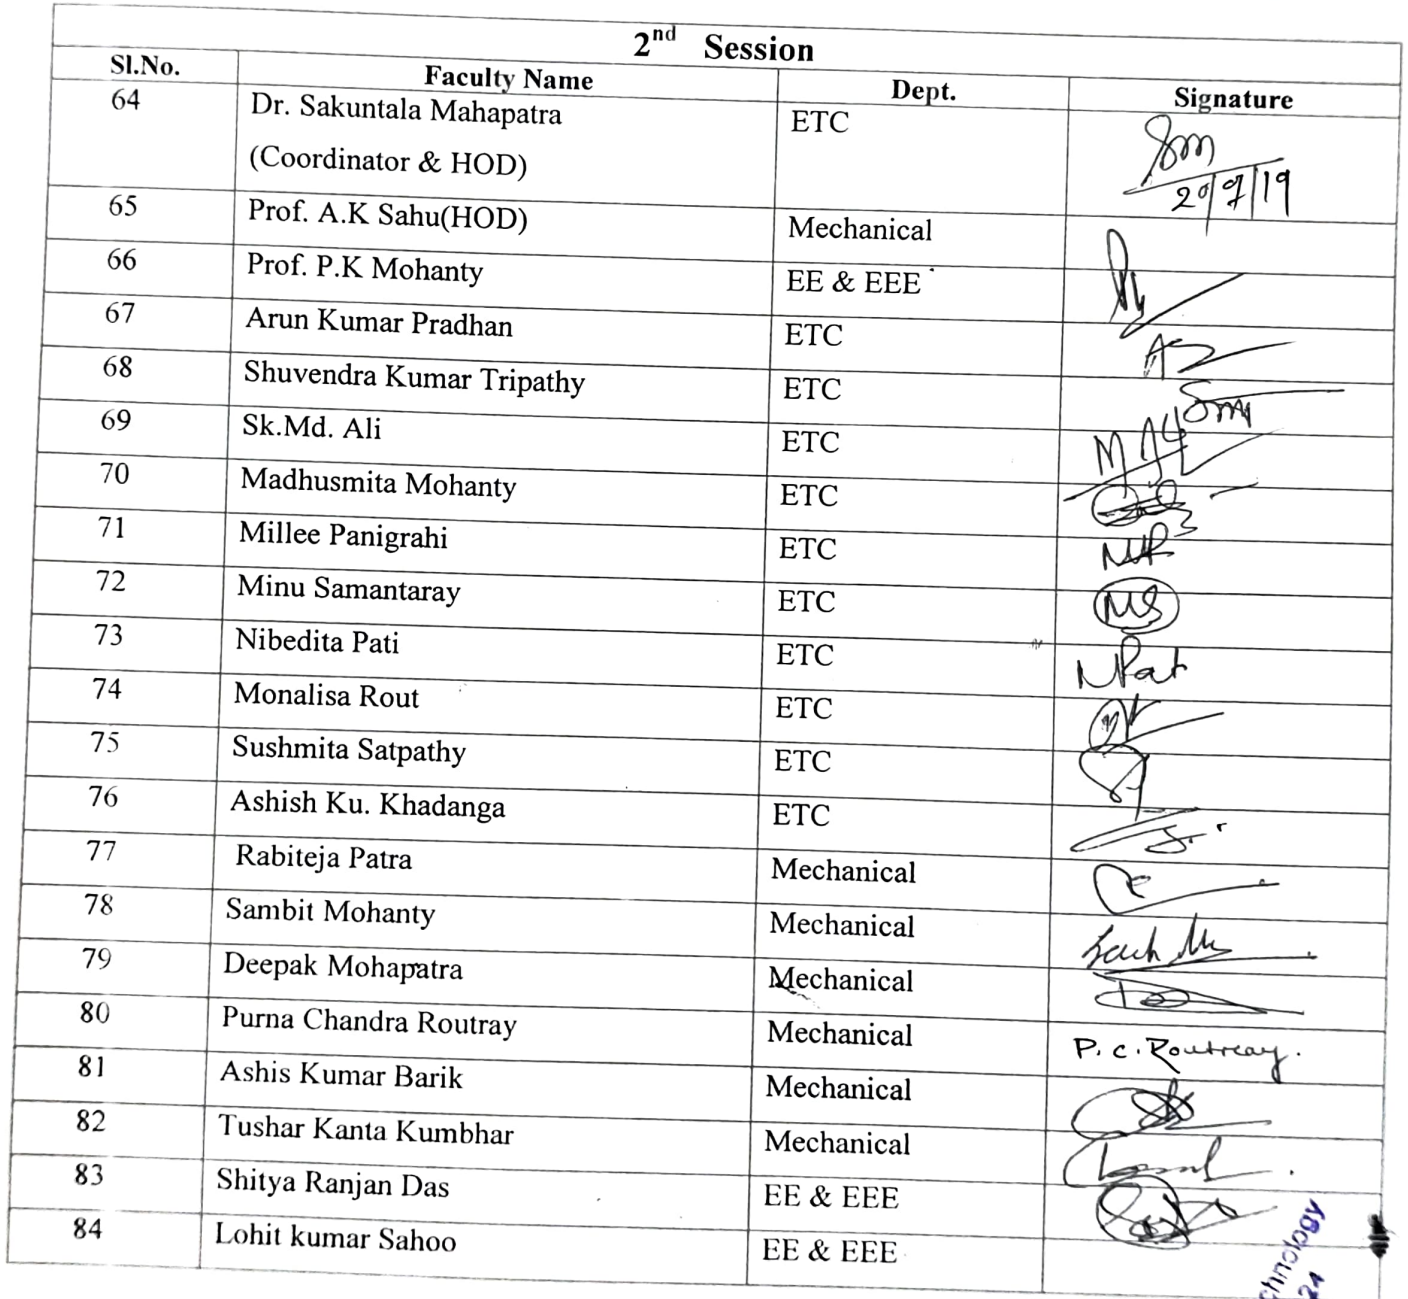 2nd Session
Sl.No. Faculty Name Dept. Signature
64 Dr. Sakuntala Mahapatra ETC
(Coordinator & HOD)
20/9/19
65 Prof. A.K Sahu(HOD) Mechanical
66 Prof. P.K Mohanty EE & EEE
67 Arun Kumar Pradhan ETC
68 Shuvendra Kumar Tripathy ETC
69 Sk.Md. Ali ETC
70 Madhusmita Mohanty ETC
71 Millee Panigrahi ETC
72 Minu Samantaray ETC MS
73 Nibedita Pati ETC NPati
74 Monalisa Rout ETC
75 Sushmita Satpathy ETC
76 Ashish Ku. Khadanga ETC
77 Rabiteja Patra Mechanical
78 Sambit Mohanty Mechanical
79 Deepak Mohapatra Mechanical
80 Purna Chandra Routray Mechanical P.C. Routray.
81 Ashis Kumar Barik Mechanical
82 Tushar Kanta Kumbhar Mechanical
83 Shitya Ranjan Das EE & EEE
84 Lohit kumar Sahoo EE & EEE
chnology
24